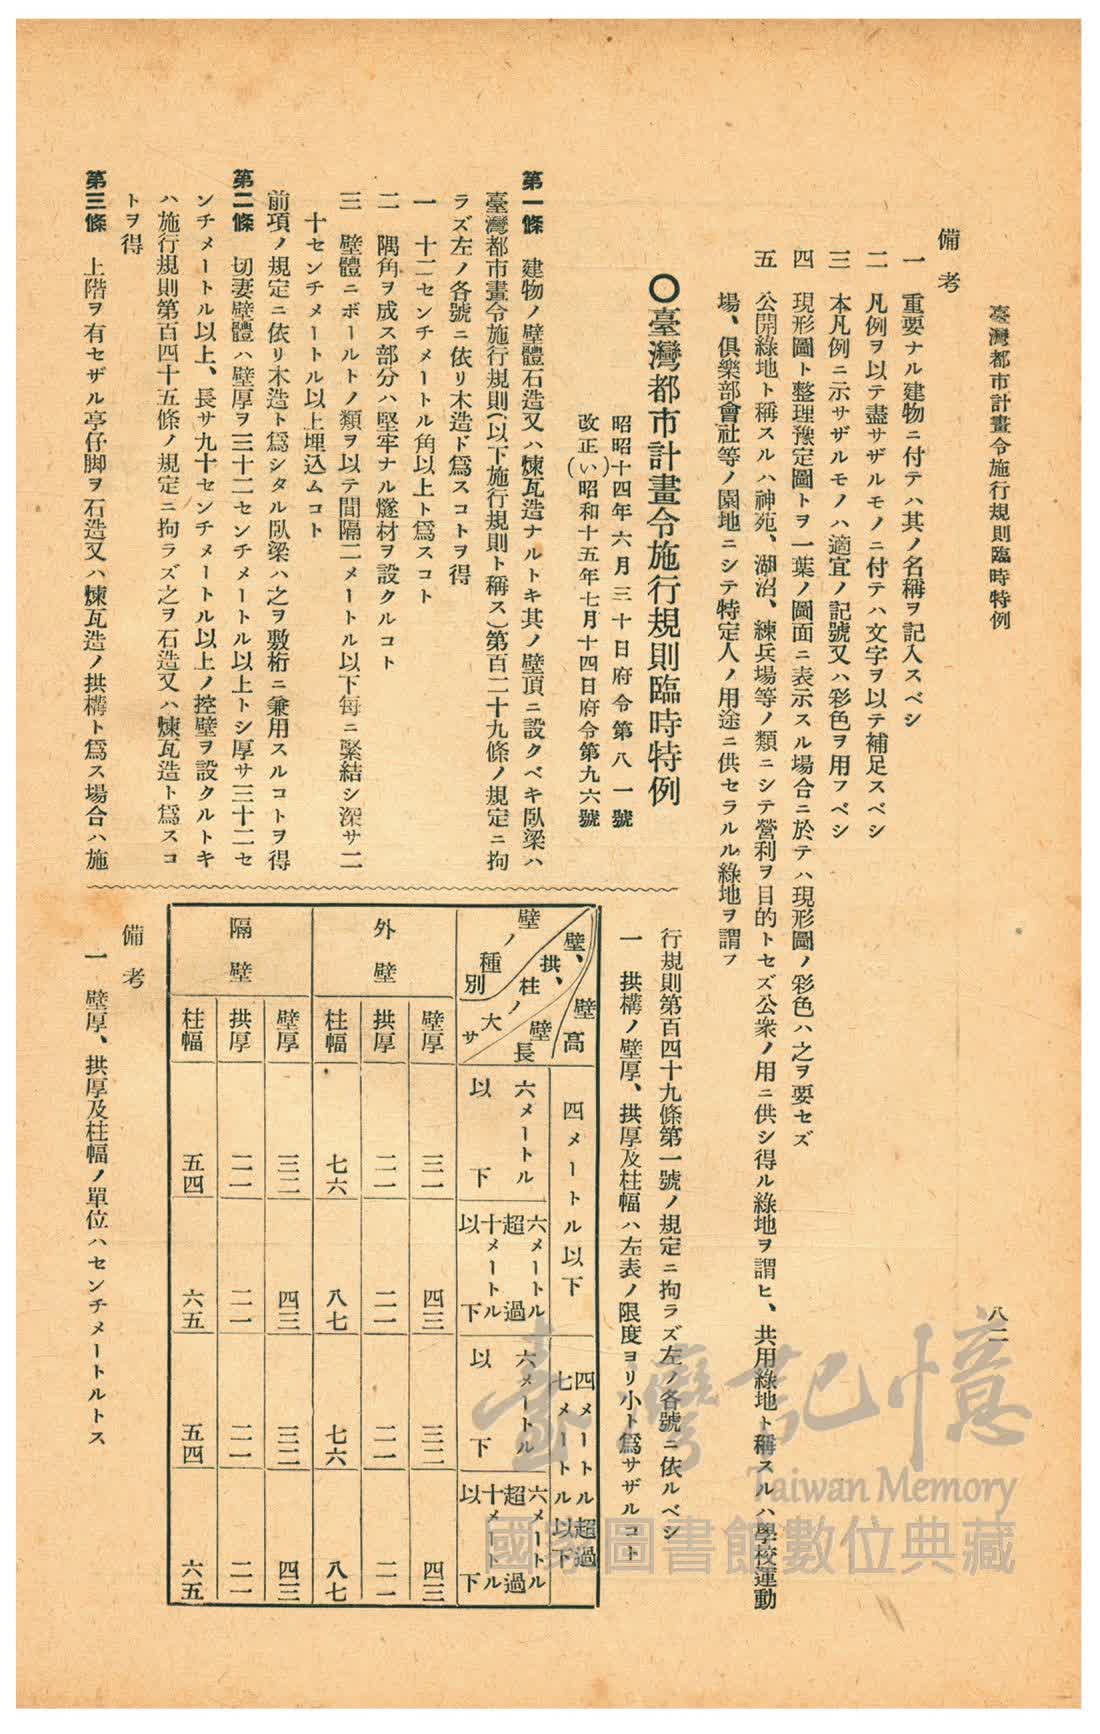 臺灣都市計畫令施行規則臨時特例
八二
備考
一 重要ナル建物ニ付テハ其ノ名稱ヲ記入スベシ
二 凡例ヲ以テ盡サザルモノニ付テハ文字ヲ以テ補足スベシ
三 本凡例ニ示サザルモノハ適宜ノ記號又ハ彩色ヲ用フベシ
四 現形圖ト整理豫定圖トヲ一葉ノ圖面ニ表示スル場合ニ於テハ現形圖ノ彩色ハ之ヲ要セズ
五 公開綠地ト稱スルハ神苑、湖沼、練兵場等ノ類ニシテ營利ヲ目的トセズ公衆ノ用ニ供シ得ル綠地ヲ謂ヒ、共用綠地ト稱スルハ學校運動
場、俱樂部會社等ノ園地ニシテ特定人ノ用途ニ供セラルル綠地ヲ謂フ
〇臺灣都市計畫令施行規則臨時特例
昭昭十四年六月三十日府令第八一號
改正(い)昭和十五年七月十四日府令第九六號
第一條 建物ノ壁體石造又ハ煉瓦造ナルトキ其ノ壁頂ニ設クベキ臥梁ハ
臺灣都市計畫令施行規則(以下施行規則ト稱ス)第百二十九條ノ規定ニ拘
ラズ左ノ各號ニ依リ木造ト爲スコトヲ得
一 十二センチメートル角以上ト爲スコト
二 隅角ヲ成ス部分ハ堅牢ナル燧材ヲ設クルコト
三 壁體ニボールトノ類ヲ以テ間隔二メートル以下每ニ緊結シ深サ二
十センチメートル以上埋込ムコト
前項ノ規定ニ依リ木造ト爲シタル臥梁ハ之ヲ敷桁ニ兼用スルコトヲ得
第二條 切妻壁體ハ壁厚ヲ三十二センチメートル以上トシ厚サ三十二セ
ンチメートル以上、長サ九十センチメートル以上ノ控壁ヲ設クルトキ
ハ施行規則第百四十五條ノ規定ニ拘ラズ之ヲ石造又ハ煉瓦造ト爲スコ
トヲ得
第三條 上階ヲ有セザル亭仔脚ヲ石造又ハ煉瓦造ノ拱構ト爲ス場合ハ施
行規則第百四十九條第一號ノ規定ニ拘ラズ左ノ各號ニ依ルベシ
一 拱構ノ壁厚、拱厚及柱幅ハ左表ノ限度ヨリ小ト爲サザルコト
壁高
壁長
壁、拱、柱ノ大サ
壁ノ種別
四メートル以下
四メートル超過七メートル以下
六メートル以下
六メートル超過十メートル以下
六メートル以下
六メートル超過十メートル以下
外壁
壁厚 三二 四三 三二 四三
拱厚 二一 二一 二一 二一
柱幅 七六 八七 七六 八七
隔壁
壁厚 三二 四三 三二 四三
拱厚 二一 二一 二一 二一
柱幅 五四 六五 五四 六五
備考
一 壁厚、拱厚及柱幅ノ單位ハセンチメートルトス
臺灣記憶
Taiwan Memory
國家圖書館數位典藏